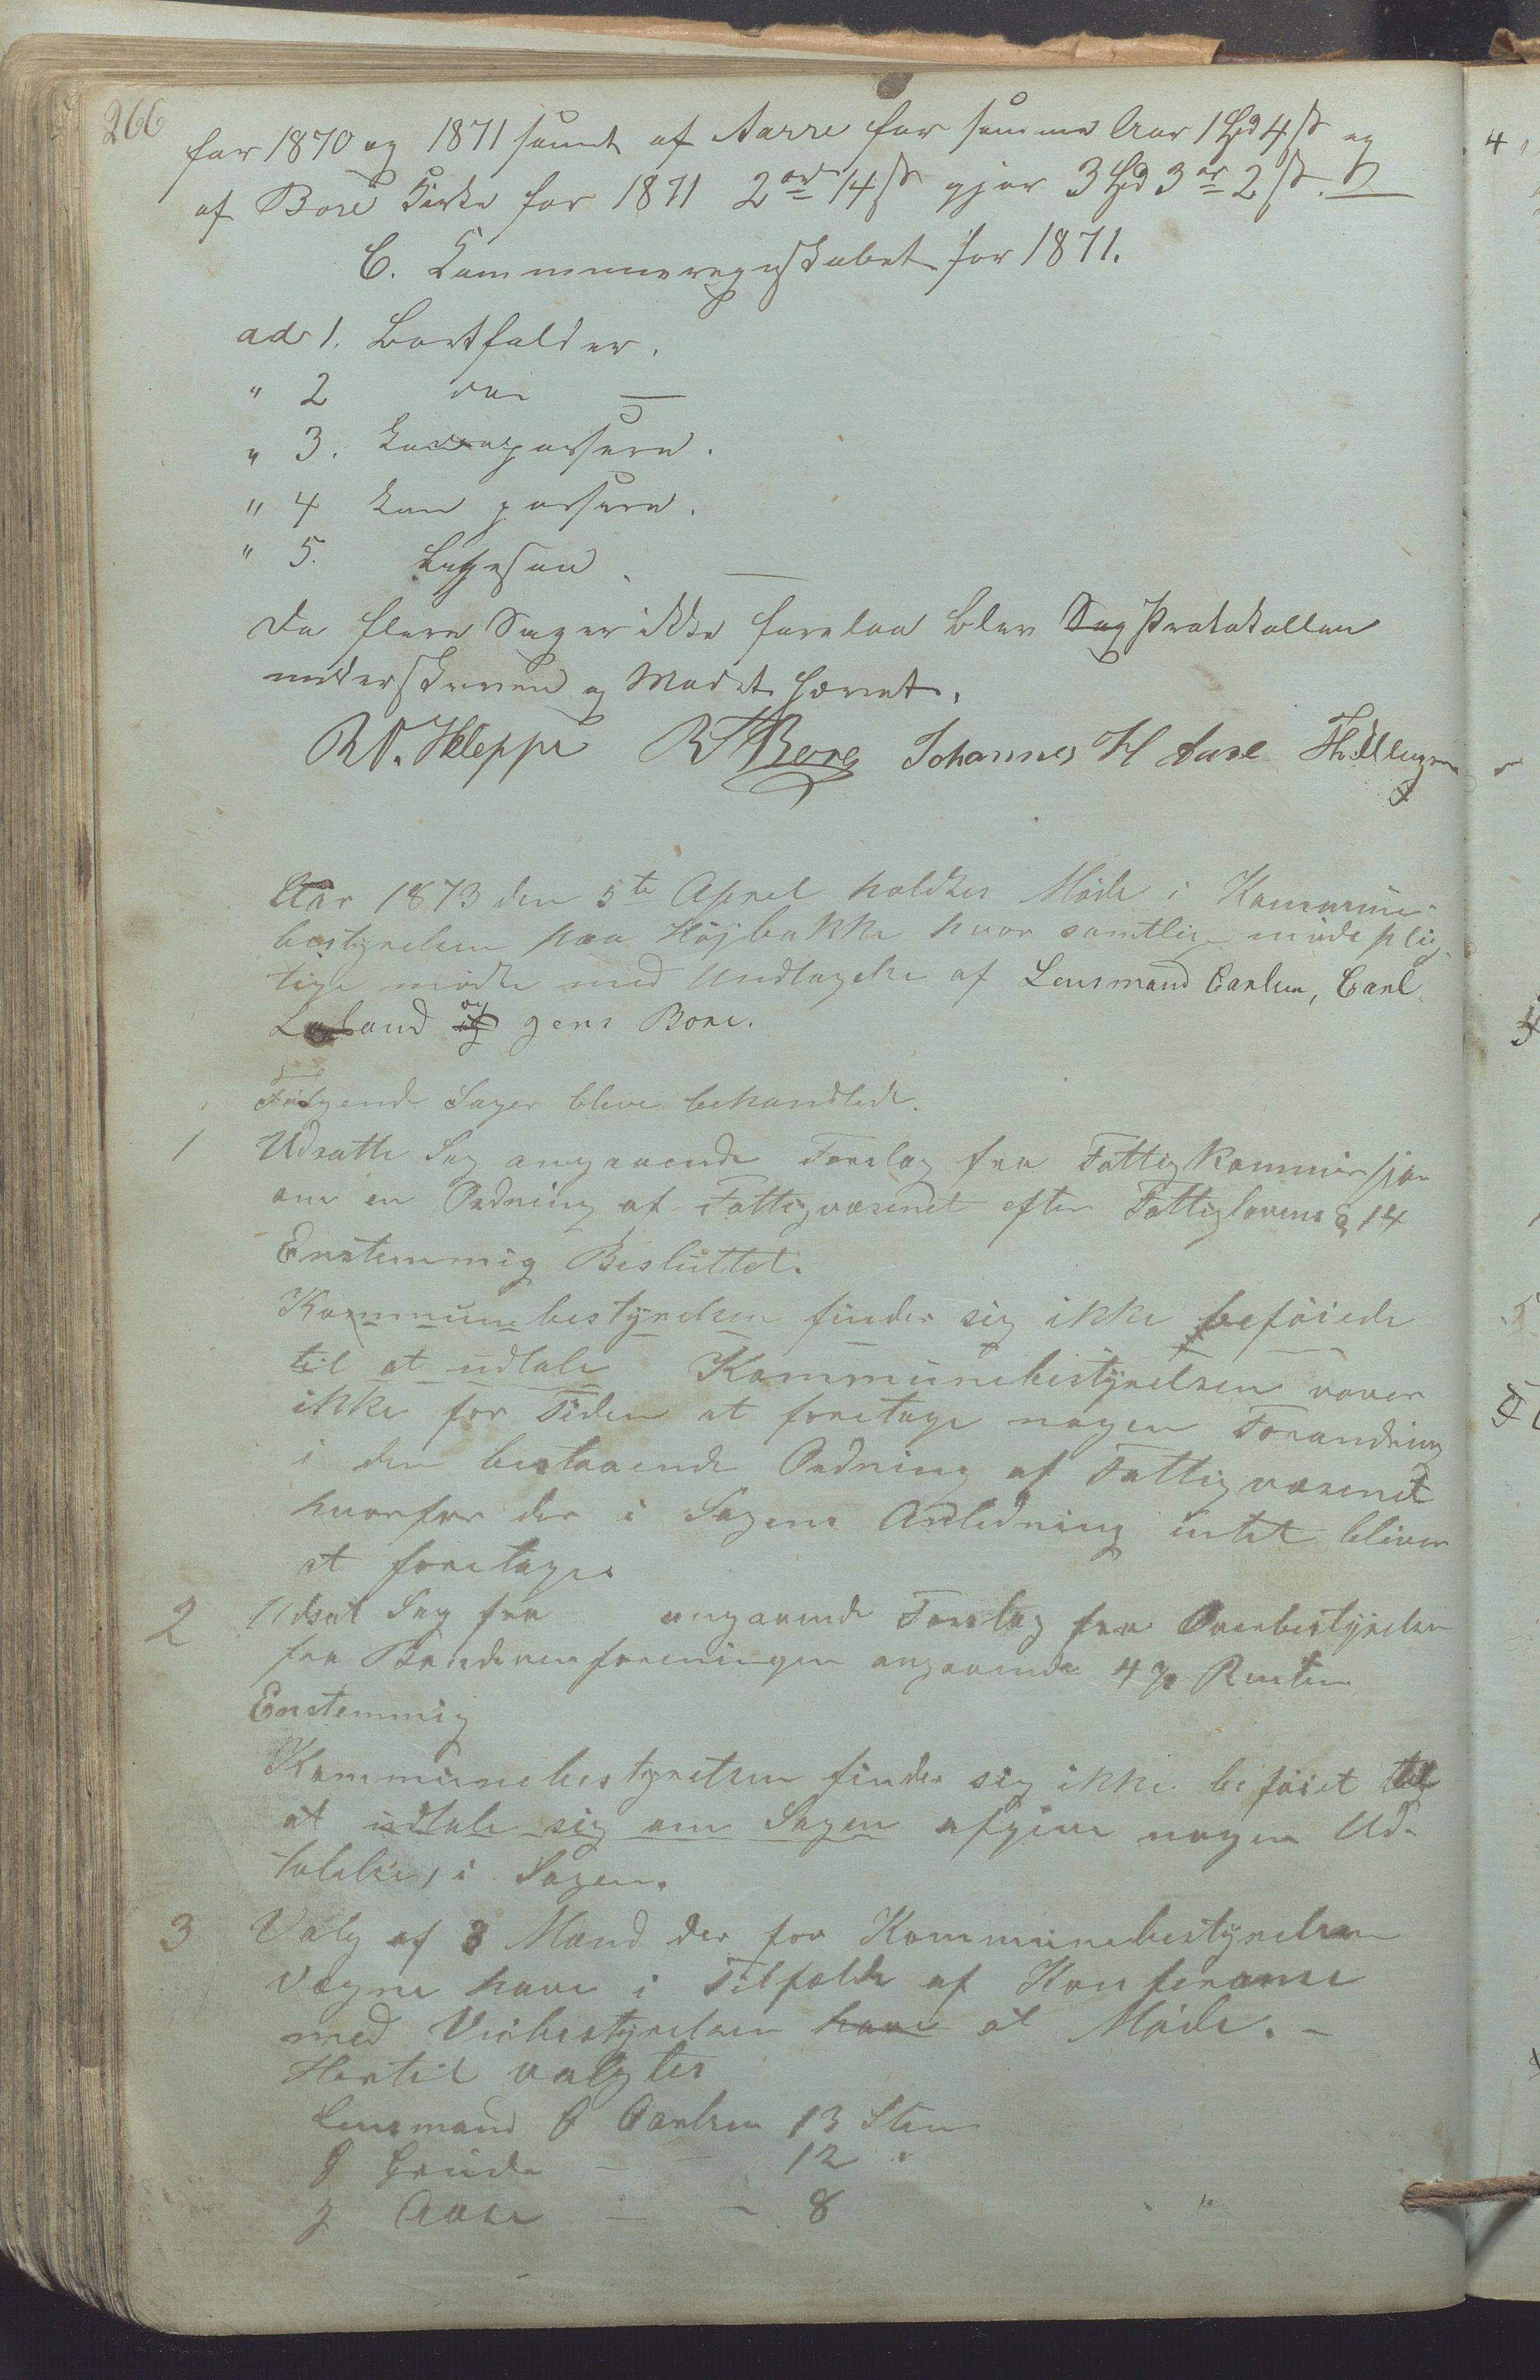 266
for 1870 og 1871 samt af Aarre for samme Aar 1 Spd 4 ß og
af Bore Kirke for 1871 2 ort 14 ß gjør 3 Spd 3 ort 2 ß.
C. Kommuneregnskabet for 1871.
ad 1. Bortfalder.
" 2 do —
" 3. kan passere.
" 4 kan passere.
" 5. Ligesaa.
Da flere Sager ikke forelaa blev Sag Protokollen
underskreven og Mødet hævet.
R N. Kleppe R T Bore Johannes H Aase
Aar 1873 den 5te April holdtes Møde i Kommune-
bestyrelsen paa Højbakke hvor samtlige mødeplig-
tige mødte med Undtagelse af Lensmand Carlsen, Carl
Laland og Jens Bore.
Følgende Sager bleve behandlede.
1 Udsatte Sag angaaende Forslag fra Fattigkommissjon
om en Ordning af Fattigvæsenet efter Fattiglovens § 14
Enstemmig Besluttet.
Kommunebestyrelsen finder sig ikke beføiede
til at udtale Kommunebestyrelsen vover
ikke for Tiden at foretage nogen Forandring
i den bestaaende Ordning af Fattigvæsenet
hvorfor der i Sagens Anledning intet bliver
at foretage.
2 Udsat Sag fra angaaende Forslag fra Overbestyrelsen
fra Bøndervenforeningen angaaende 4 % Renten
Enstemmig
Kommunebestyrelsen finder sig ikke beføiet til
at udtale sig om Sagen afgive nogen Ud-
talelse, i Sagen.
3 Valg af 3 Mænd der for Kommunebestyrelsen
Vegne have i Tilfælde af Konferanse
med Veibestyrelsen have at Møde. -
Hertil valgtes
Lensmand O Carlsen 13 Stem
O Grude - - 12 "
J Aase - - 8 "